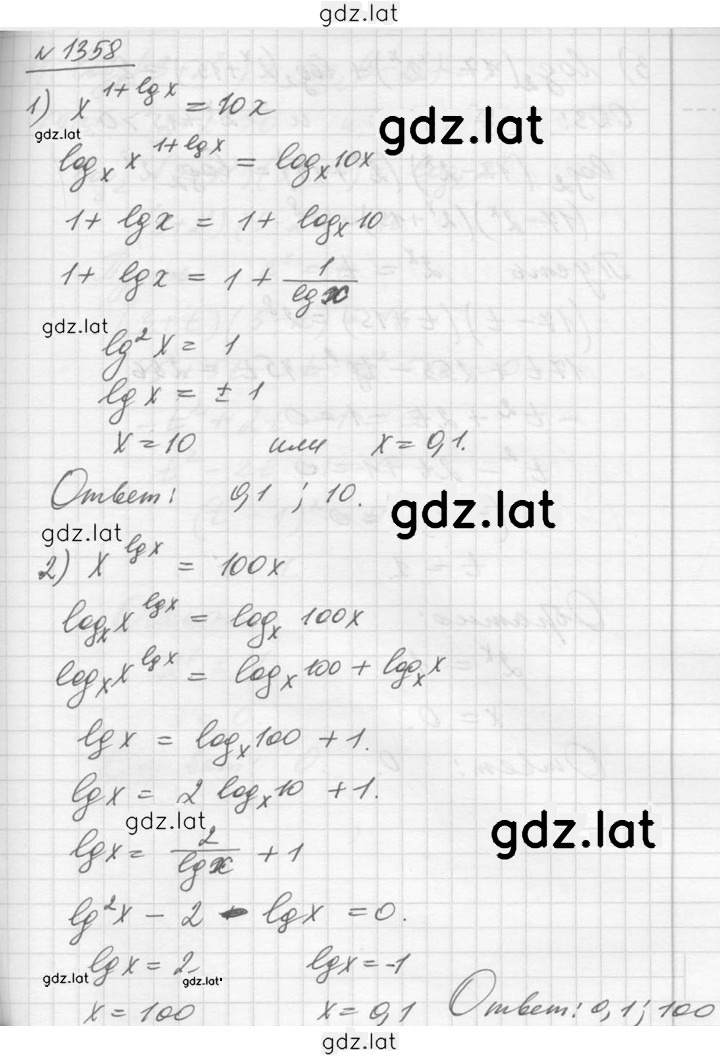 gdz.lat
№ 1358
1) x^{1+lgx} = 10x
gdz.lat
gdz.lat
log_x x^{1+lgx} = log_x 10x
1 + lgx = 1 + log_x 10
1 + lgx = 1 + 1/lgx
gdz.lat
lg²x = 1
lgx = ± 1
x = 10 или x = 0,1.
Ответ: 0,1 ; 10.
gdz.lat
gdz.lat
2) x^{lgx} = 100x
log_x x^{lgx} = log_x 100x
log_x x^{lgx} = log_x 100 + log_x x
lgx = log_x 100 + 1.
lgx = 2 log_x 10 + 1.
gdz.lat
gdz.lat
lgx = 2/lgx + 1
lg²x - 2 - lgx = 0.
lgx = 2 lgx = -1
gdz.lat
gdz.lat
x = 100 x = 0,1 Ответ: 0,1; 100
gdz.lat